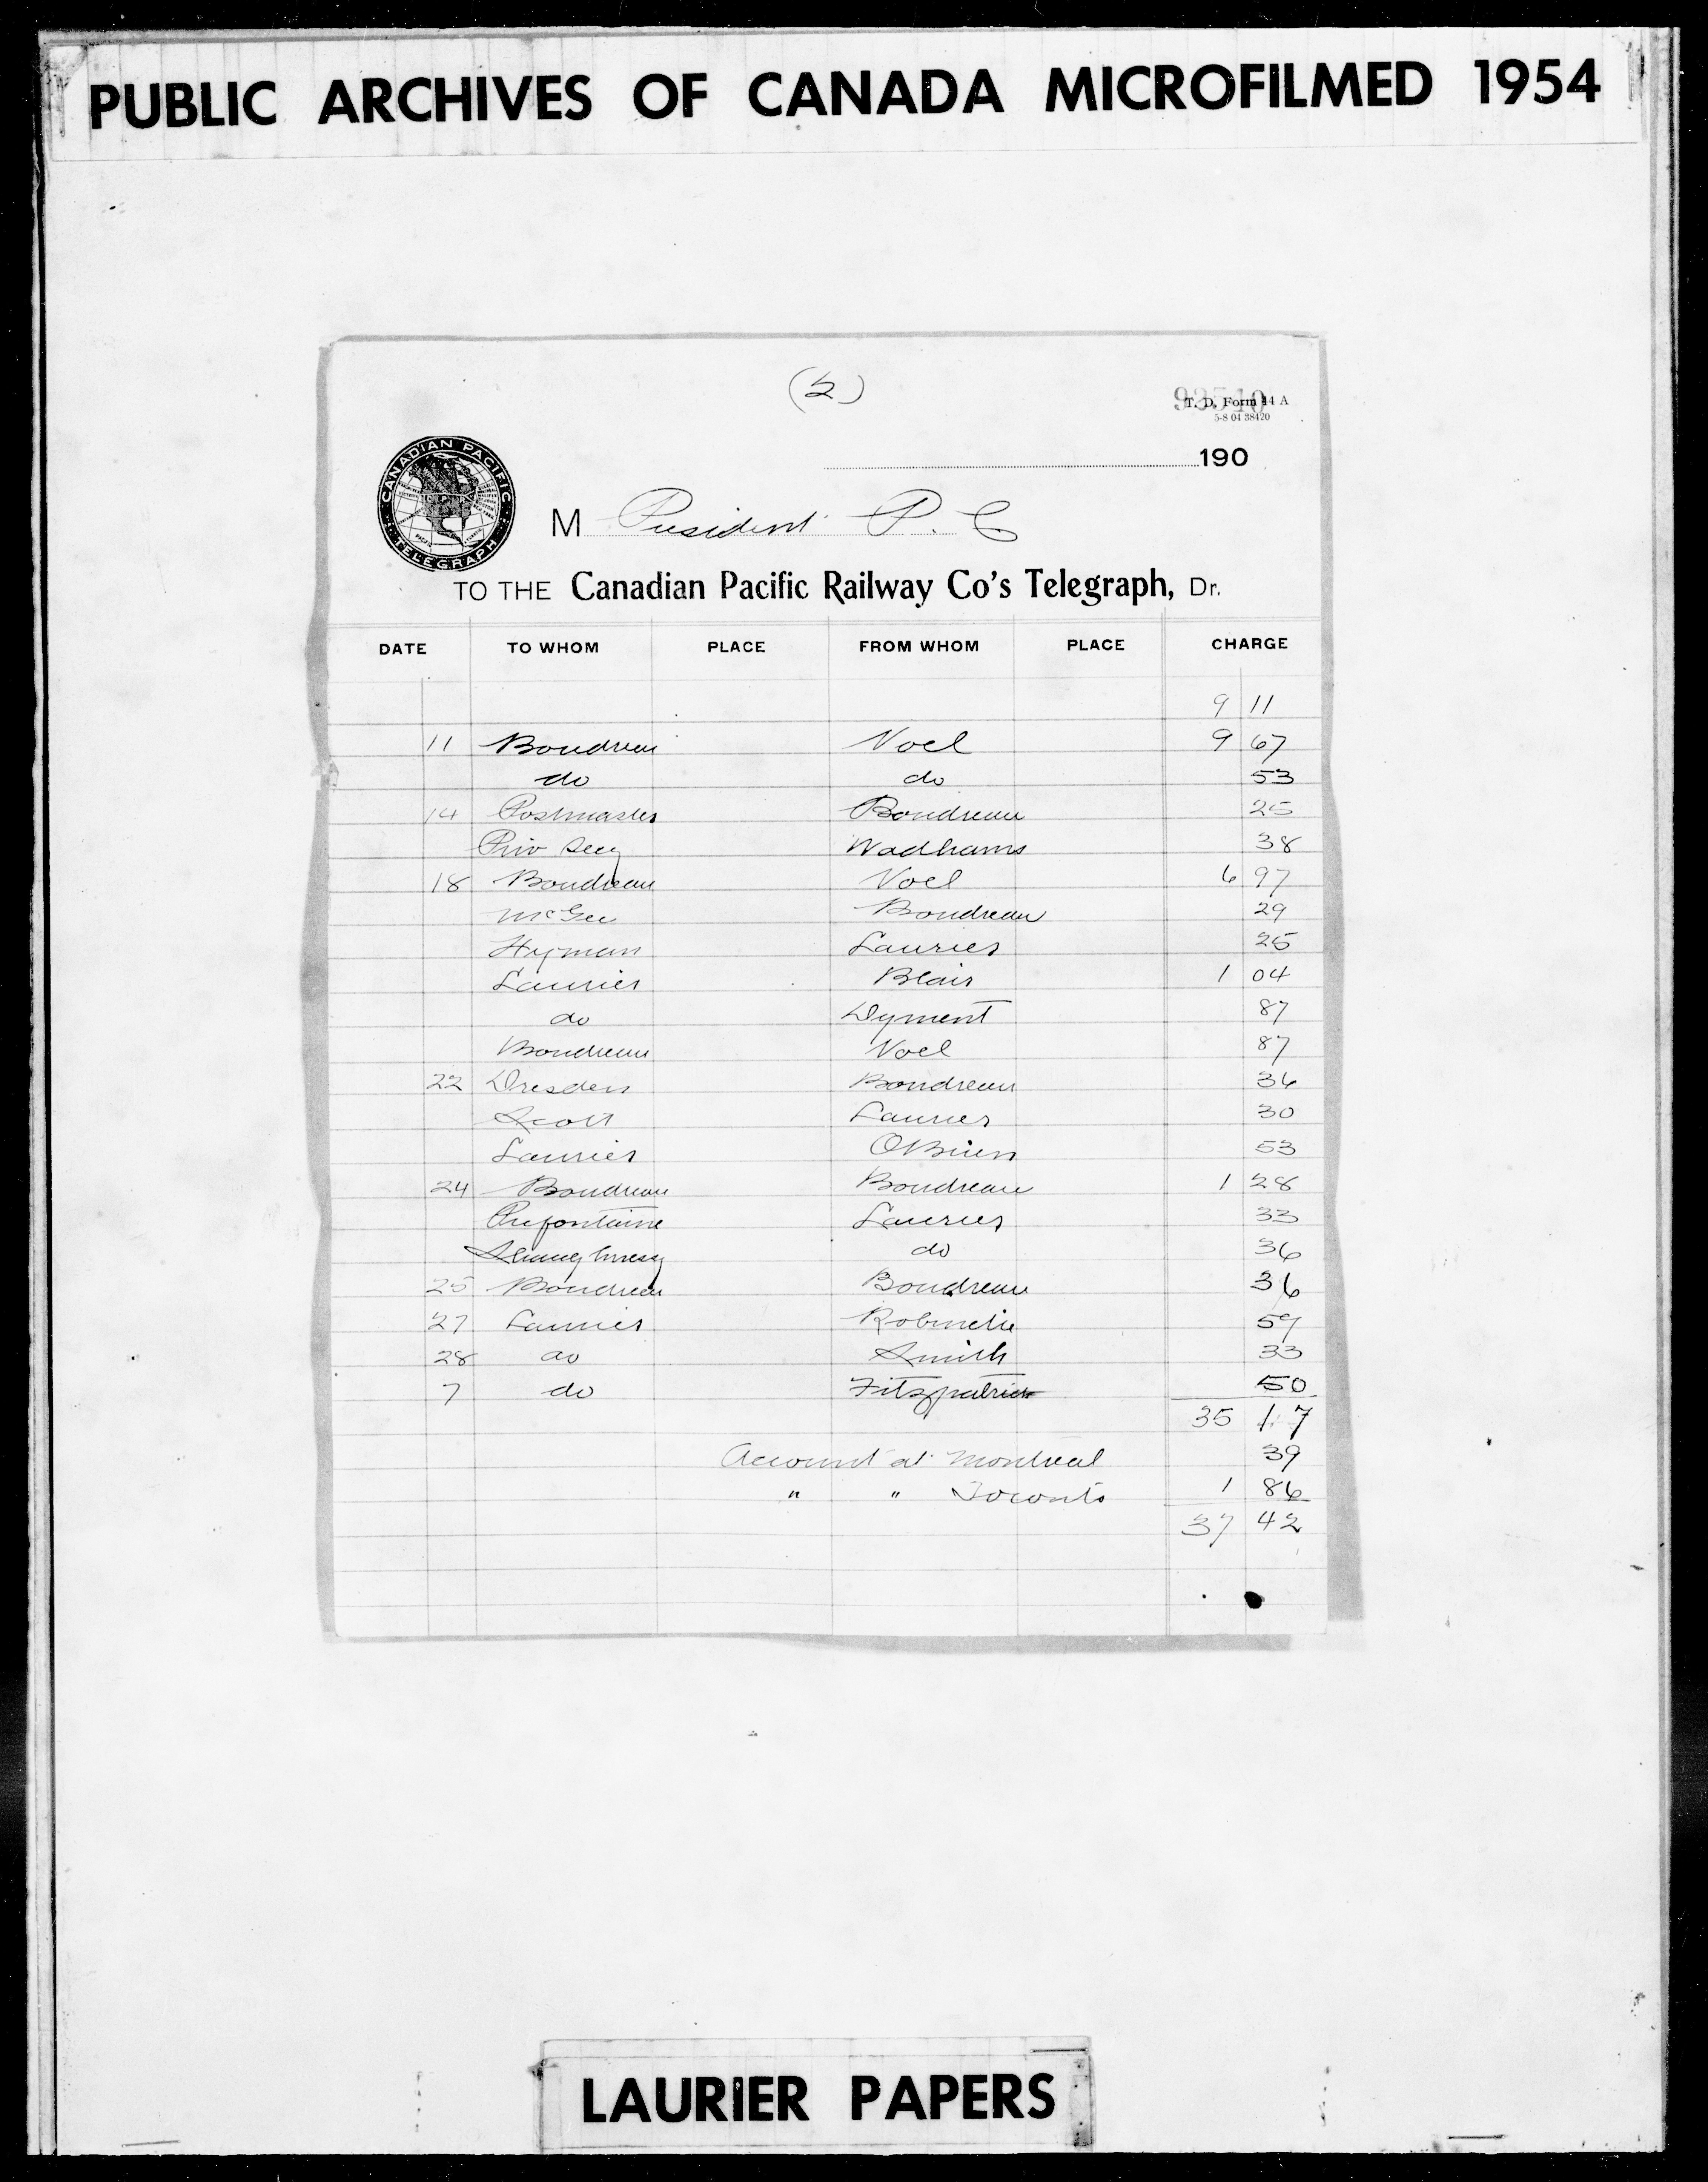 PUBLIC ARCHIVES OF CANADA MICROFILMED 1954
(2)
93540
T. D. Form 44 A
5-8 04 38420
190
CANADIAN PACIFIC TELEGRAPH
M President P. C
TO THE Canadian Pacific Railway Co's Telegraph, Dr.
DATE TO WHOM PLACE FROM WHOM PLACE CHARGE
9 11
11 Boudreau Noel 9 67
do do 53
14 Postmaster Boudreau 25
Priv Secy Wadhams 38
18 Boudreau Noel 6 97
McGee Boudreau 29
Hyman Laurier 25
Laurier Blair 1 04
do Dyment 87
Boudreau Noel 87
22 Dresden Boudreau 36
Scott Laurier 30
Laurier OBrien 53
24 Boudreau Boudreau 1 28
Prefontaine Laurier 33
Shaughnesy do 36
25 Boudreau Boudreau 36
27 Laurier Robinette 59
28 do Smith 33
7 do Fitzpatrick 50
35 17
Account at Montreal 39
" " Toronto 1 86
37 42
LAURIER PAPERS